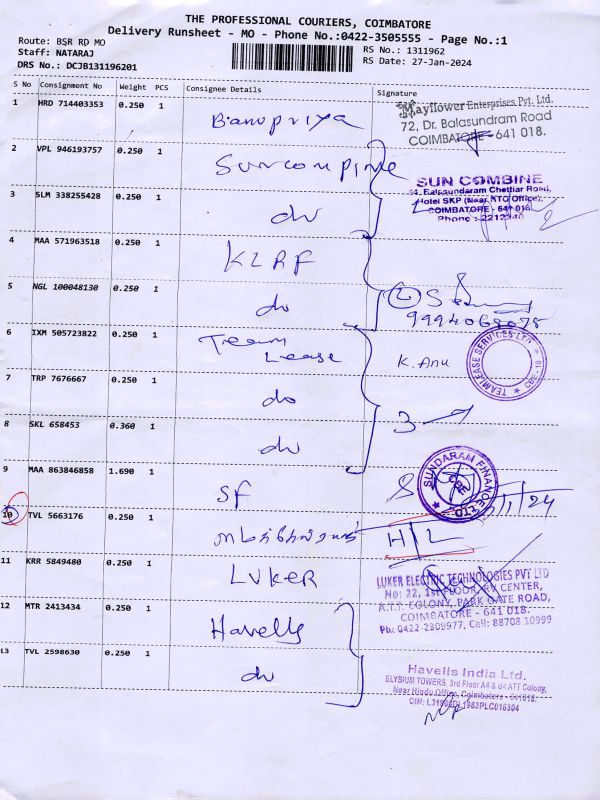 THE PROFESSIONAL COURIERS, COIMBATORE
Delivery Runsheet - MO - Phone No.:0422-3505555 - Page No.:1
Route: BSR RD MO
Staff: NATARAJ
DRS No.: DCJB131196201
RS No.: 1311962
RS Date: 27-Jan-2024
S No Consignment No Weight PCS Consignee Details Signature
1 HRD 714403353 0.250 1 Banupriya
Mayflower Enterprises Pvt. Ltd.
72, Dr. Balasundram Road
COIMBATORE - 641 018.
2 VPL 946193757 0.250 1
SUN COMBINE
Balasundaram Chettiar Road,
Hotel SKP (Near RTO Office),
COIMBATORE - 641 018
Phone : 2212340
3 SLM 338255428 0.250 1 do
4 MAA 571963518 0.250 1 KLRF
5 NGL 100048130 0.250 1 do
2
6 IXM 505723822 0.250 1 Team
Lease
K. Anu
TEAMLEASE SERVICES LTD
CBE-18
7 TRP 7676667 0.250 1 do
3
8 SKL 658453 0.360 1 do
9 MAA 863846858 1.690 1 SF
SUNDARAM FINANCE LTD
10 TVL 5663176 0.250 1 H/L
11 KRR 5849480 0.250 1 LUKER
LUKER ELECTRIC TECHNOLOGIES PVT LTD
No: 22, 1st FLOOR, RV CENTER,
A.T.T. COLONY, PARK GATE ROAD,
COIMBATORE - 641 018.
Ph: 0422-2309977, Cell: 88708 10999
12 MTR 2413434 0.250 1 Havells
13 TVL 2598630 0.250 1 do
Havells India Ltd.
ELYSIUM TOWERS, 3rd Floor A4 & B4 ATT Colony,
Near Hindu Office, Coimbatore - 641018.